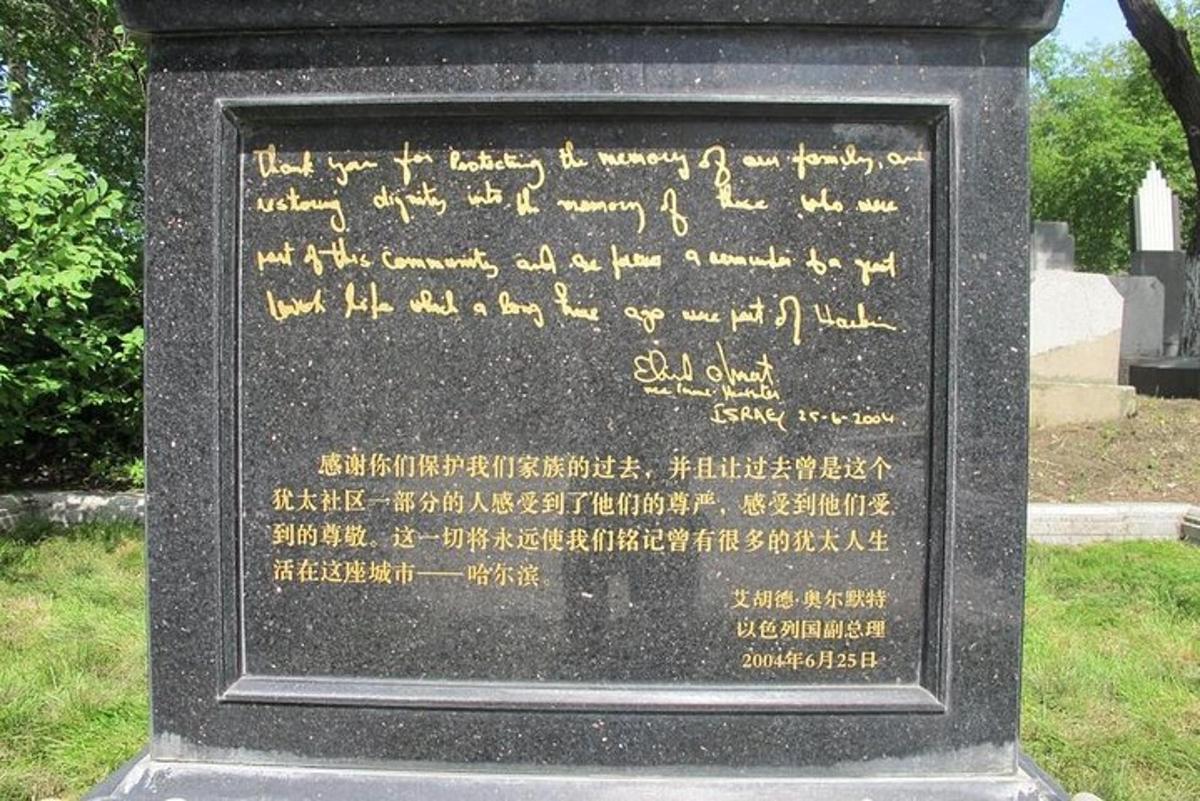 Thank you for Protecting the memory of our family, and
restoring dignity into the memory of those who were
part of this community and a reminder of a great
Jewish life which a long time ago were part of Harbin.
Ehud Olmert
Vice Prime Minister
ISRAEL 25-6-2004.
感谢你们保护我们家族的过去，并且让过去曾是这个
犹太社区一部分的人感受到了他们的尊严，感受到他们受
到的尊敬。这一切将永远使我们铭记曾有很多的犹太人生
活在这座城市——哈尔滨。
艾胡德·奥尔默特
以色列国副总理
2004年6月25日